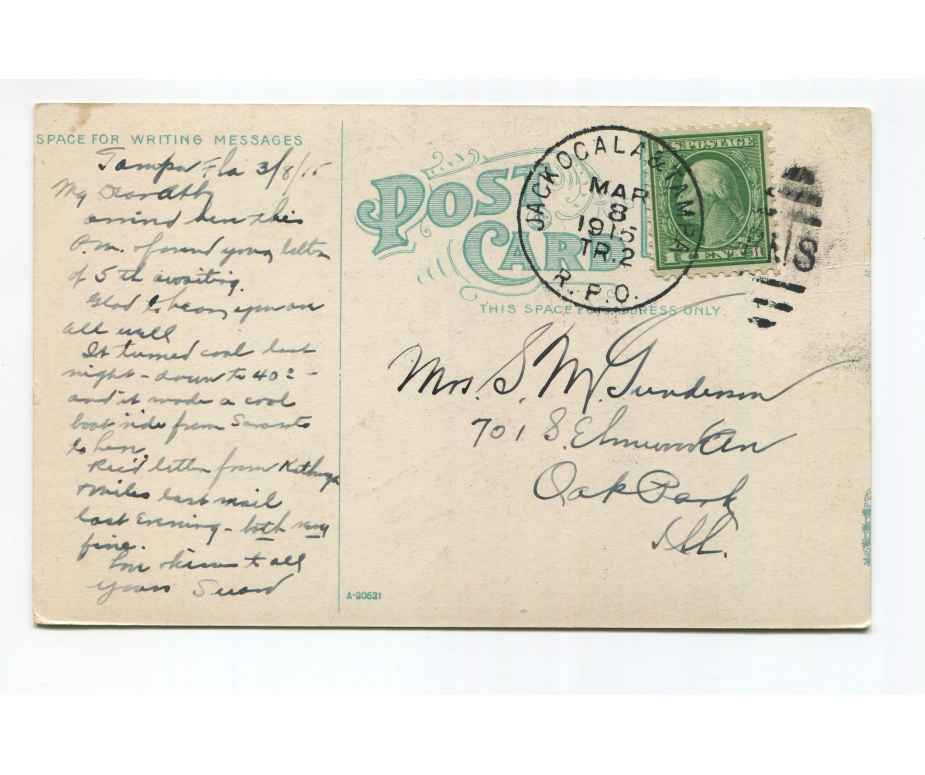 SPACE FOR WRITING MESSAGES
Tampa Fla 3/8/15
My Dear
arrived here this
P.M. & found your letter
of 5th awaiting.
Glad to hear you are
all well
It turned cool last
night - down to 40° -
and it made a cool
boat ride from Sarasota
to here.
Rec'd letter from
Miles last mail
last Evening - both very
fine.
Love & kisses to all
yours
POST CARD
THIS SPACE FOR ADDRESS ONLY.
JACK OCALA & TAMPA
MAR
8
1915
TR.2
R.P.O.
U.S. POSTAGE
1 CENT 1
S
Mrs. S. M. Gunderson
701 S. Elmwood Av
Oak Park
Ill.
A-20521